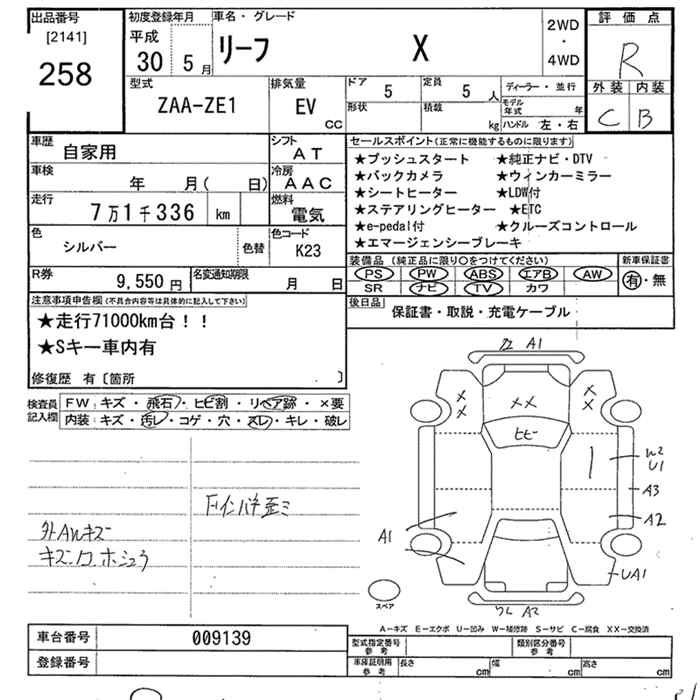 出品番号
[2141]
258
初度登録年月
平成
30 5 月
車名・グレード
リーフ X
2WD
・
4WD
評価点
R
外装 内装
C B
型式
ZAA-ZE1
排気量
EV
CC
ドア 5
定員 5 人
形状
積載 kg
ディーラー・並行
モデル年式 年
ハンドル 左・右
車歴
自家用
シフト
AT
車検
年 月( 日)
冷房
AAC
走行
7万1千336 km
燃料
電気
色
シルバー
色替
色コード
K23
R券
9,550 円
名変通知期限
月 日
セールスポイント(正常に機能するものに限ります)
★プッシュスタート ★純正ナビ・DTV
★バックカメラ ★ウィンカーミラー
★シートヒーター ★LDW付
★ステアリングヒーター ★ETC
★e-pedal付 ★クルーズコントロール
★エマージェンシーブレーキ
装備品(純正品に限り○をつけてください)
PS PW ABS エアB AW
SR ナビ TV カワ
新車保証書
有・無
後日品
保証書・取説・充電ケーブル
注意事項申告欄(不具合内容等は具体的に記入して下さい)
★走行71000km台！！
★Sキー車内有
修復歴 有〔箇所 〕
検査員
記入欄
FW: キズ・飛石・ヒビ割・リペア跡・×要
内装: キズ・汚レ・コゲ・穴・スレ・キレ・破レ
外AWキズ
A1
XX
XX
XX
ヒビ
W2
U1
A3
A2
A1
UA1
A2
スペア
A-キズ E-エクボ U-凹み W-補修跡 S-サビ C-腐食 XX-交換済
車台番号 009139
登録番号
型式指定番号
参考
類別区分番号
参考
車庫証明用
参考
長さ cm
幅 cm
高さ cm